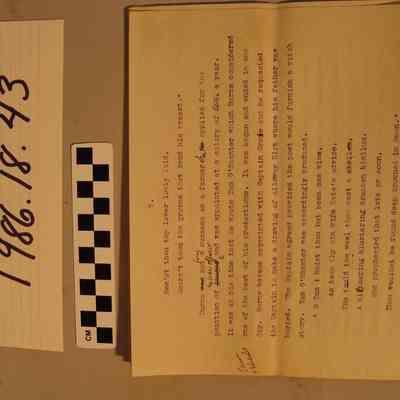 1986.18.43
CM
5.
Saw'st thou the lover lowly laid,
Heard'st thou the groans that rend his breast."
Burns success as a farmer applies for the
position of and was appointed at a salary of a year.
It was at his time that he wrote Tam O'Shanter which Burns considered
one of the best of his productions. It was begun and ended in one
day. Burns became acquainted with Captain Grose and he requested
the Captain to make a drawing of Alloway Kirk where his father was
buried. The Captain agreed provided the poet would furnish a witch
story. Tam O'Shanter was accordingly produced.
O Tam! Hadst thou but been sae wise,
As taen thy ain wife Kate's advice.
She tauld thee weel thou wast a skellum,
A blethering blustering drunken blellum.
She prophesied that late or soon,
Thou wouldst be found deep drowned in Doon."